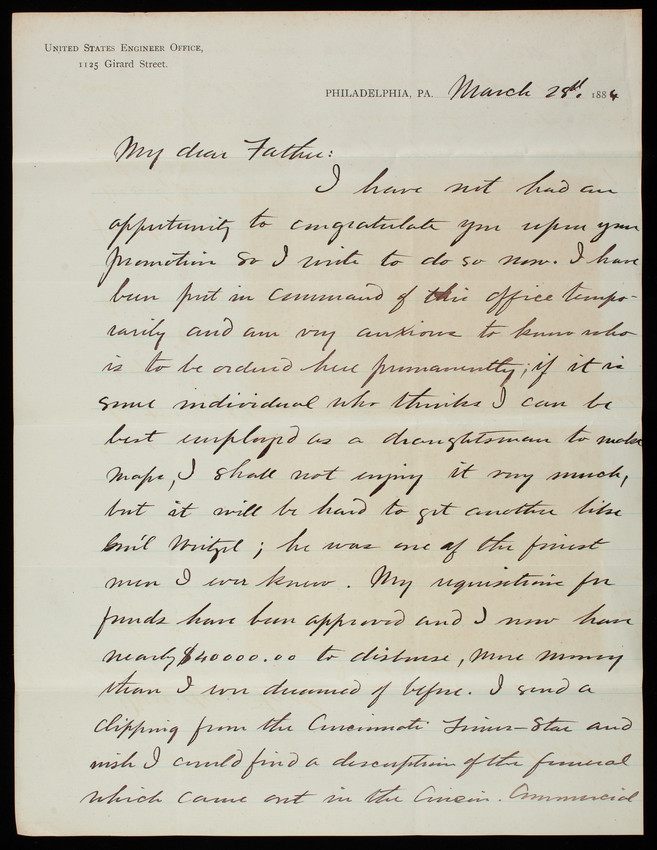 United States Engineer Office,
1125 Girard Street.
PHILADELPHIA, PA. March 28th. 1884
My dear Father:
I have not had an
opportunity to congratulate you upon your
promotion so I write to do so now. I have
been put in command of this office tempo-
rarily and am very anxious to know who
is to be ordered here permanently; if it is
some individual who thinks I can be
best employed as a draughtsman to make
maps, I shall not enjoy it very much,
but it will be hard to get another like
Gen'l Weitzel; he was one of the finest
men I ever knew. My requisitions for
funds have been approved and I now have
nearly $40000.00 to disburse, more money
than I ever dreamed of before. I send a
clipping from the Cincinnati Times-Star and
wish I could find a description of the funeral
which came out in the Cincin. Commercial